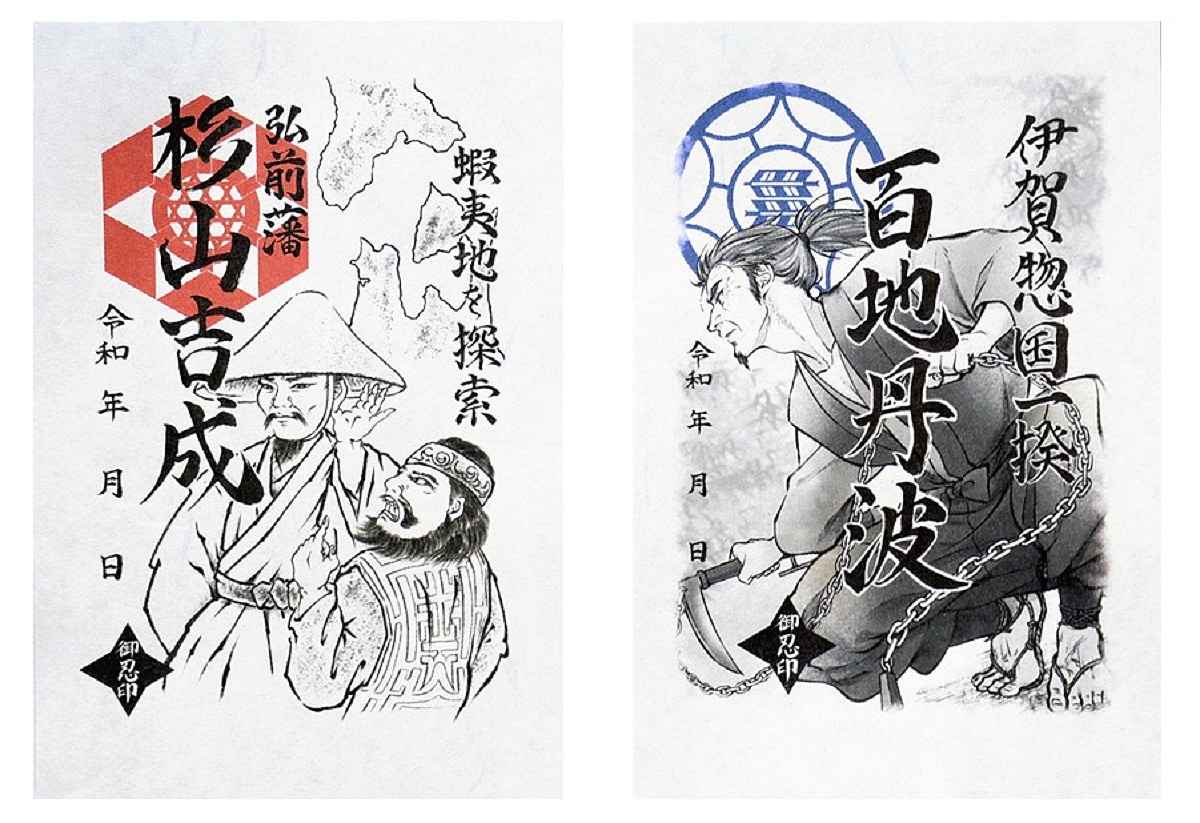 蝦夷地を探索
弘前藩
杉山吉成
令和 年 月 日
御忍印
伊賀惣国一揆
百地丹波
令和 年 月 日
御忍印